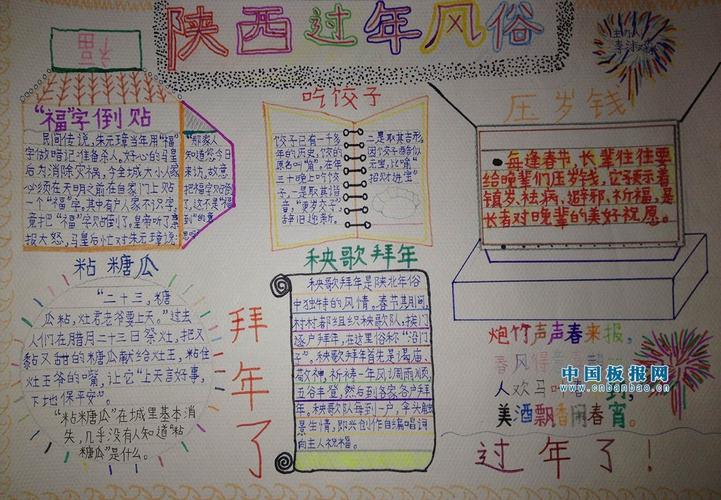 陕西过年风俗
福
主办人
"福"字倒贴
民间传说,朱元璋当年用"福"
字做暗记准备杀人。好心的马皇
后为消除灾祸,令全城大小人家
必须在天明之前在自家门上贴
一个"福"字。其中有户人家不识字,
竟把"福"字贴倒了,皇帝听了禀
报大怒,马皇后忙对朱元璋说:
"那家人
知道您今日
来访,故意
把福字贴倒
了,这不是"福
到"的意
吃饺子
饺子已有一千多
年的历史,饺的
原名叫"角",在年
三十晚上吃饺
子,一是取其谐
音,"更岁交子",
辞旧迎新。
二是取其吉形,
因个饺子酷似
元宝,比喻"
招财进宝"
压岁钱
每逢春节,长辈往往要
给晚辈们压岁钱,它表示着
镇岁、祛病、避邪、祈福,是
长者对晚辈的美好祝愿。
粘糖瓜
"二十三,糖
瓜粘,灶君老爷要上天。"过去
人们在腊月二十三日祭灶,把又
黏又甜的糖瓜献给灶王,粘住
灶王爷的嘴,让它"上天言好事,
下地保平安"。
"粘糖瓜"在城里基本消
失,几乎没有人知道"粘
糖瓜"是什么。
拜年了
秧歌拜年
秧歌拜年是陕北年俗
中独特的风情。春节期间,
村村都组织秧歌队,挨门
逐户拜年,在这里俗称"沿门
子"。秧歌拜年首先是谒庙、
敬神,祈祷一年风调雨顺,
五谷丰登,然后到各家各户拜
年。秧歌队每到一户,伞头触
景生情,即兴创作自编唱词
向主人祝福。
炮竹声声春来报,
春风得
人欢马
美酒飘香闹春宵。
中国板报网
www.cnbanbao.cn
过年了!